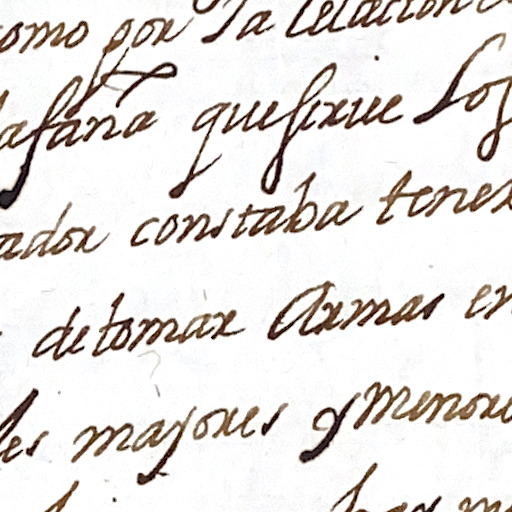 omo por la relacion
que sirve los
ador constaba tener
de tomar Armas en
les mayores y menore